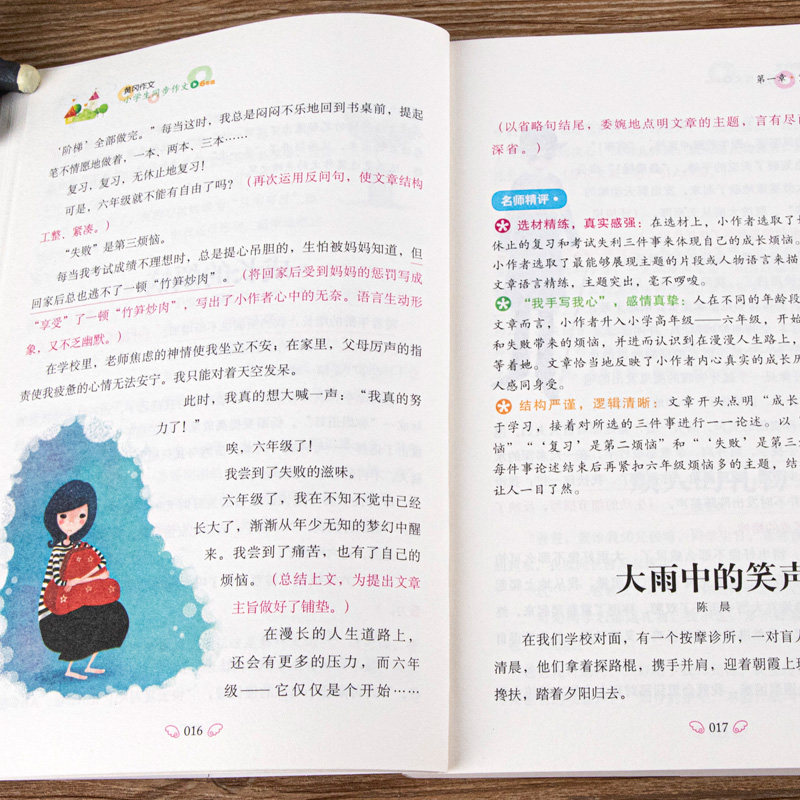 黄冈作文
小学生同步作文 6年级
‘阶梯’全部做完。”每当这时，我总是闷闷不乐地回到书桌前，提起
笔不情愿地做着，一本、两本、三本……
复习，复习，无休止地复习！
可是，六年级就不能有自由了吗？（再次运用反问句，使文章结构
工整、紧凑。）
“失败”是第三烦恼。
每当我考试成绩不理想时，总是提心吊胆的，生怕被妈妈知道，但
回家后总也逃不了一顿“竹笋炒肉”。（将回家后受到妈妈的惩罚写成
“享受”了一顿“竹笋炒肉”，写出了小作者心中的无奈。语言生动形
象，又不乏幽默。）
在学校里，老师焦虑的神情使我坐立不安；在家里，父母厉声的指
责使我疲惫的心情无法安宁。我只能对着天空发呆。
此时，我真的想大喊一声：“我真的努
力了！”
唉，六年级了！
我尝到了失败的滋味。
六年级了，我在不知不觉中已经
长大了，渐渐从年少无知的梦幻中醒
来。我尝到了痛苦，也有了自己的
烦恼。（总结上文，为提出文章
主旨做好了铺垫。）
在漫长的人生道路上，
还会有更多的压力，而六年
级——它仅仅是个开始……
016
第一章·
（以省略句结尾，委婉地点明文章的主题，言有尽
深省。）
名师精评
选材精练，真实感强：在选材上，小作者选取了
休止的复习和考试失利三件事来体现自己的成长烦恼。
小作者选取了最能够展现主题的片段或人物语言来描
文章语言精练，主题突出，毫不啰唆。
“我手写我心”，感情真挚：人在不同的年龄段
文章而言，小作者升入小学高年级——六年级，开始
和失败带来的烦恼，并进而认识到在漫漫人生路上，
等着她。文章恰当地反映了小作者内心真实的成长历
人感同身受。
结构严谨，逻辑清晰：文章开头点明“成长
于学习，接着对所选的三件事进行一一论述。以
恼”“‘复习’是第二烦恼”和“‘失败’是第三
每件事论述结束后再紧扣六年级烦恼多的主题，结
让人一目了然。
大雨中的笑声
陈 晨
在我们学校对面，有一个按摩诊所，一对盲人
清晨，他们拿着探路棍，携手并肩，迎着朝霞上班
搀扶，踏着夕阳归去。
017